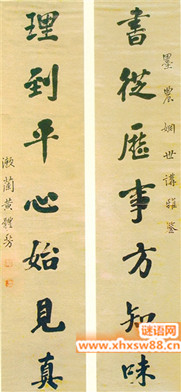 墨農姻世講雅鑒
書從歷事方知味
理到平心始見真
漱蘭黃體芳
谜语网
www.xhxsw88.cn